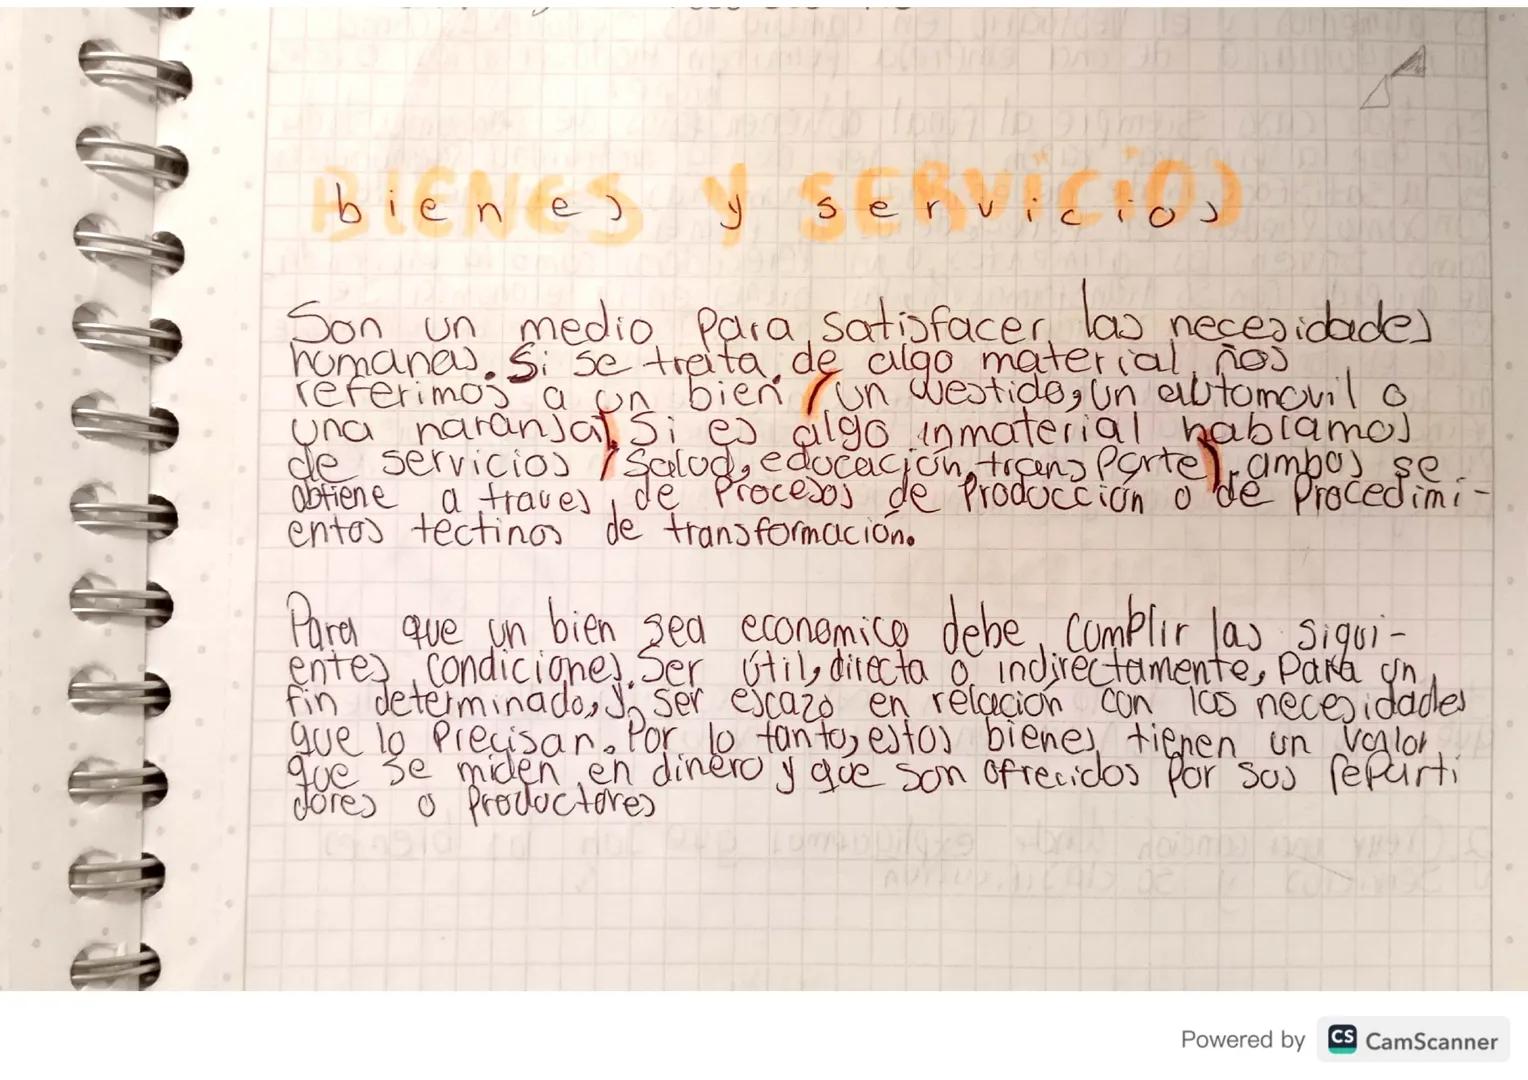 BIENES Y SERVICIOS
bienes y servicios
Son un medio para satisfacer las necesidades
humanas. Si se trata de algo material nos
referimos a un bien (un vestido, un automovil o
una naranja). Si es algo inmaterial hablamos
de servicios (Salud, educación, transporte), ambos se
obtiene a traves de Procesos de Producción o de Procedimi-
entos tectinos de transformación.
Para que un bien sea economico debe cumplir las sigui-
entes condiciones. Ser útil, directa o indirectamente, Para un
fin determinado, y ser escazo en relación con las necesidades
que lo Precisan. Por lo tanto, estos bienes tienen un valor
que se miden en dinero y que son ofrecidos por sus reparti
dores o Productores
Powered by CS CamScanner